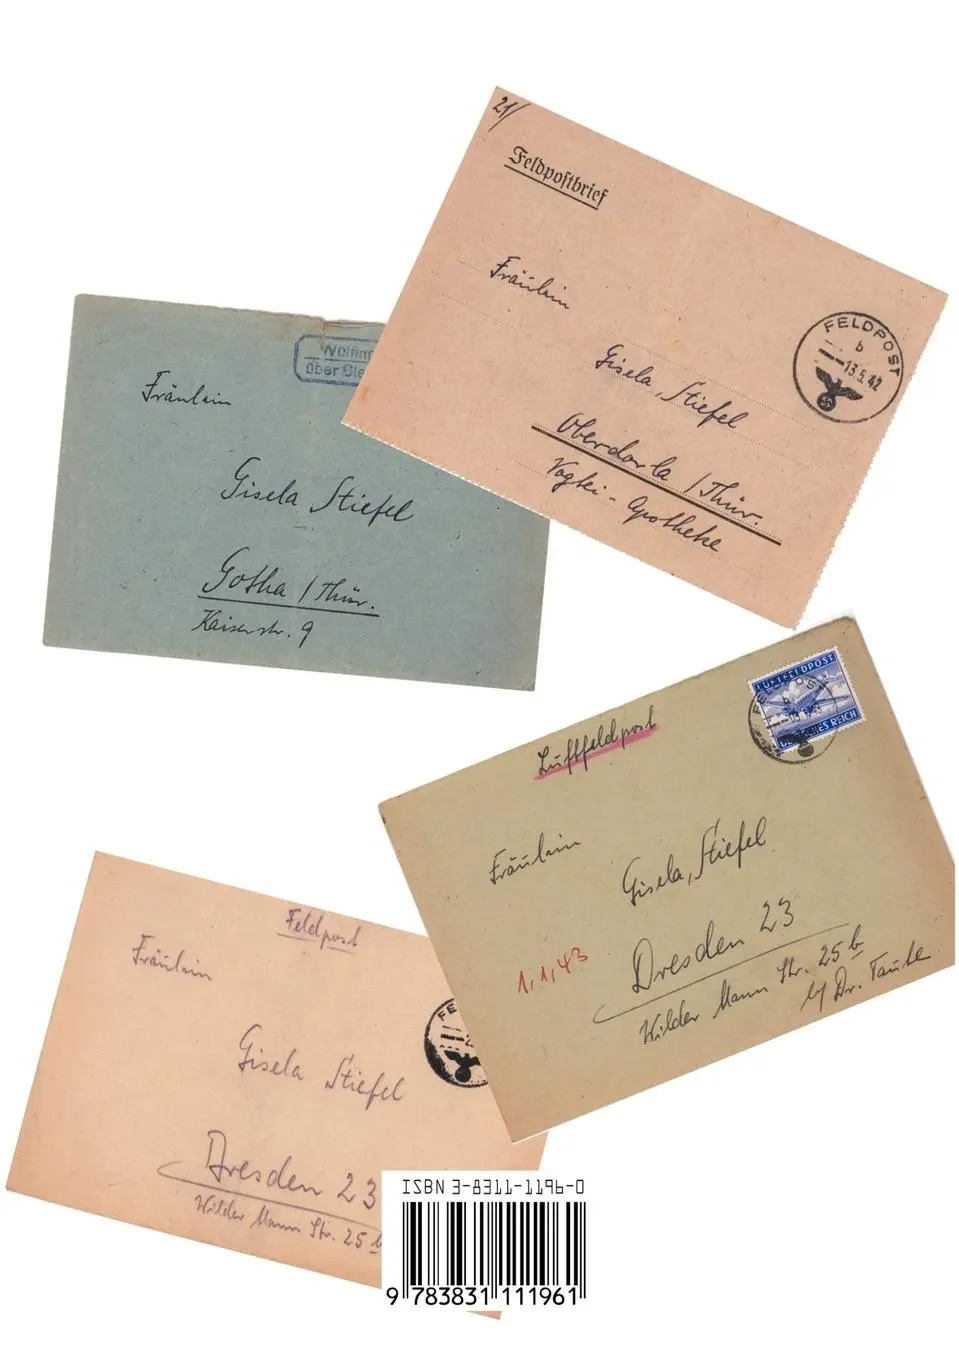 21/
Feldpostbrief
Fräulein
FELDPOST
b
13.5.42
Gisela Stiefel
Oberdorla / Thür.
Vogtei-Apotheke
über
Fräulein
Gisela Stiefel
Gotha / Thür.
Kaiserstr. 9
LUFTFELDPOST
FELDPOST
b
DEUTSCHES REICH
Luftfeldpost
Fräulein
Gisela Stiefel
1.1.43
Dresden 23
Wilder Mann Str. 25 b
b/ Dr. Taube
Feldpost
Fräulein
FE
Gisela Stiefel
Dresden 23
Wilder Mann Str. 25 b
ISBN 3-8311-1196-0
9 783831 111961